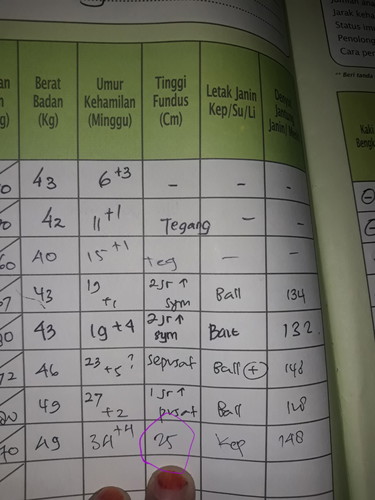 Jarak keha
Status imu
Penolong
Cara per
** Beri tanda
Berat Badan (Kg)
Umur Kehamilan (Minggu)
Tinggi Fundus (Cm)
Letak Janin Kep/Su/Li
Kaki Bengk
43 6+3 - - -
42 11+1 Tegang - -
40 15+1 teg - -
43 19+1 2jr↑ sym Ball 134
43 19+4 2jr↑ sym Ball 132
46 23+5? sepusat Ball (+) 148
49 27+2 1jr↑ pusat Ball
49 34+4 25 Kep 148